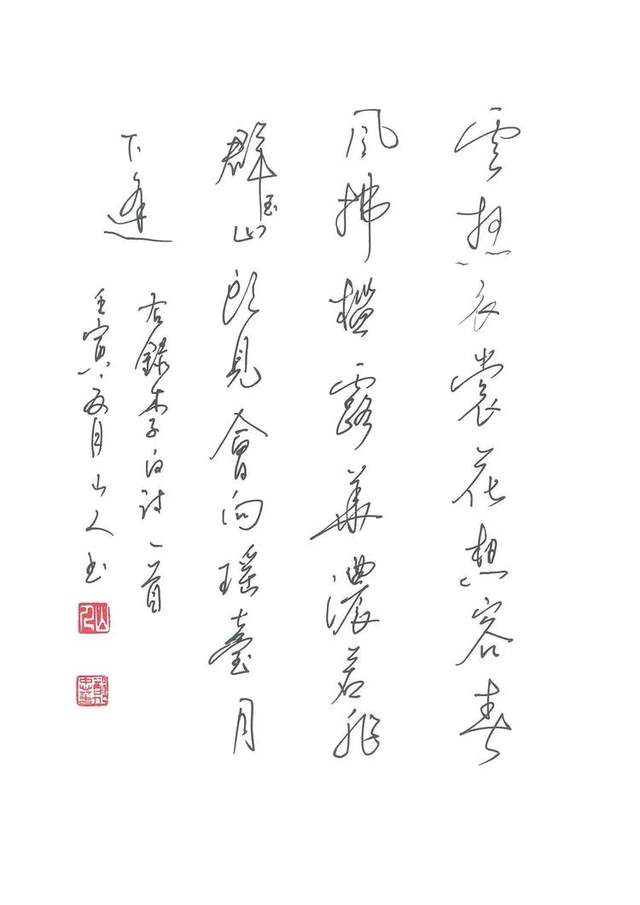 雲想衣裳花想容春
風拂檻露華濃若非
群玉山頭見會向瑤臺月
下逢
右錄李白詩一首
壬寅五月山人書
山人